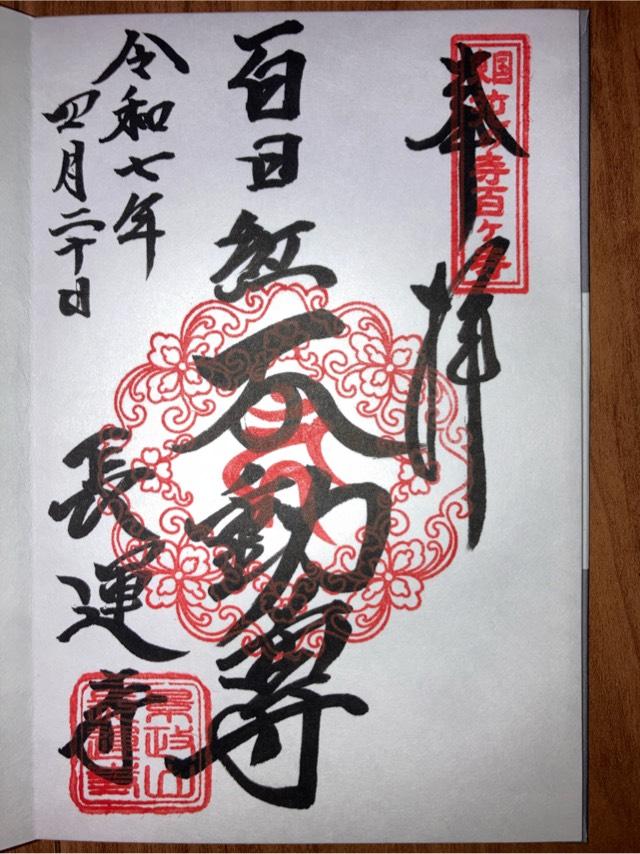 東国花の寺百ヶ寺
奉拝
百日紅不動尊
令和七年
四月二十日
長運寺